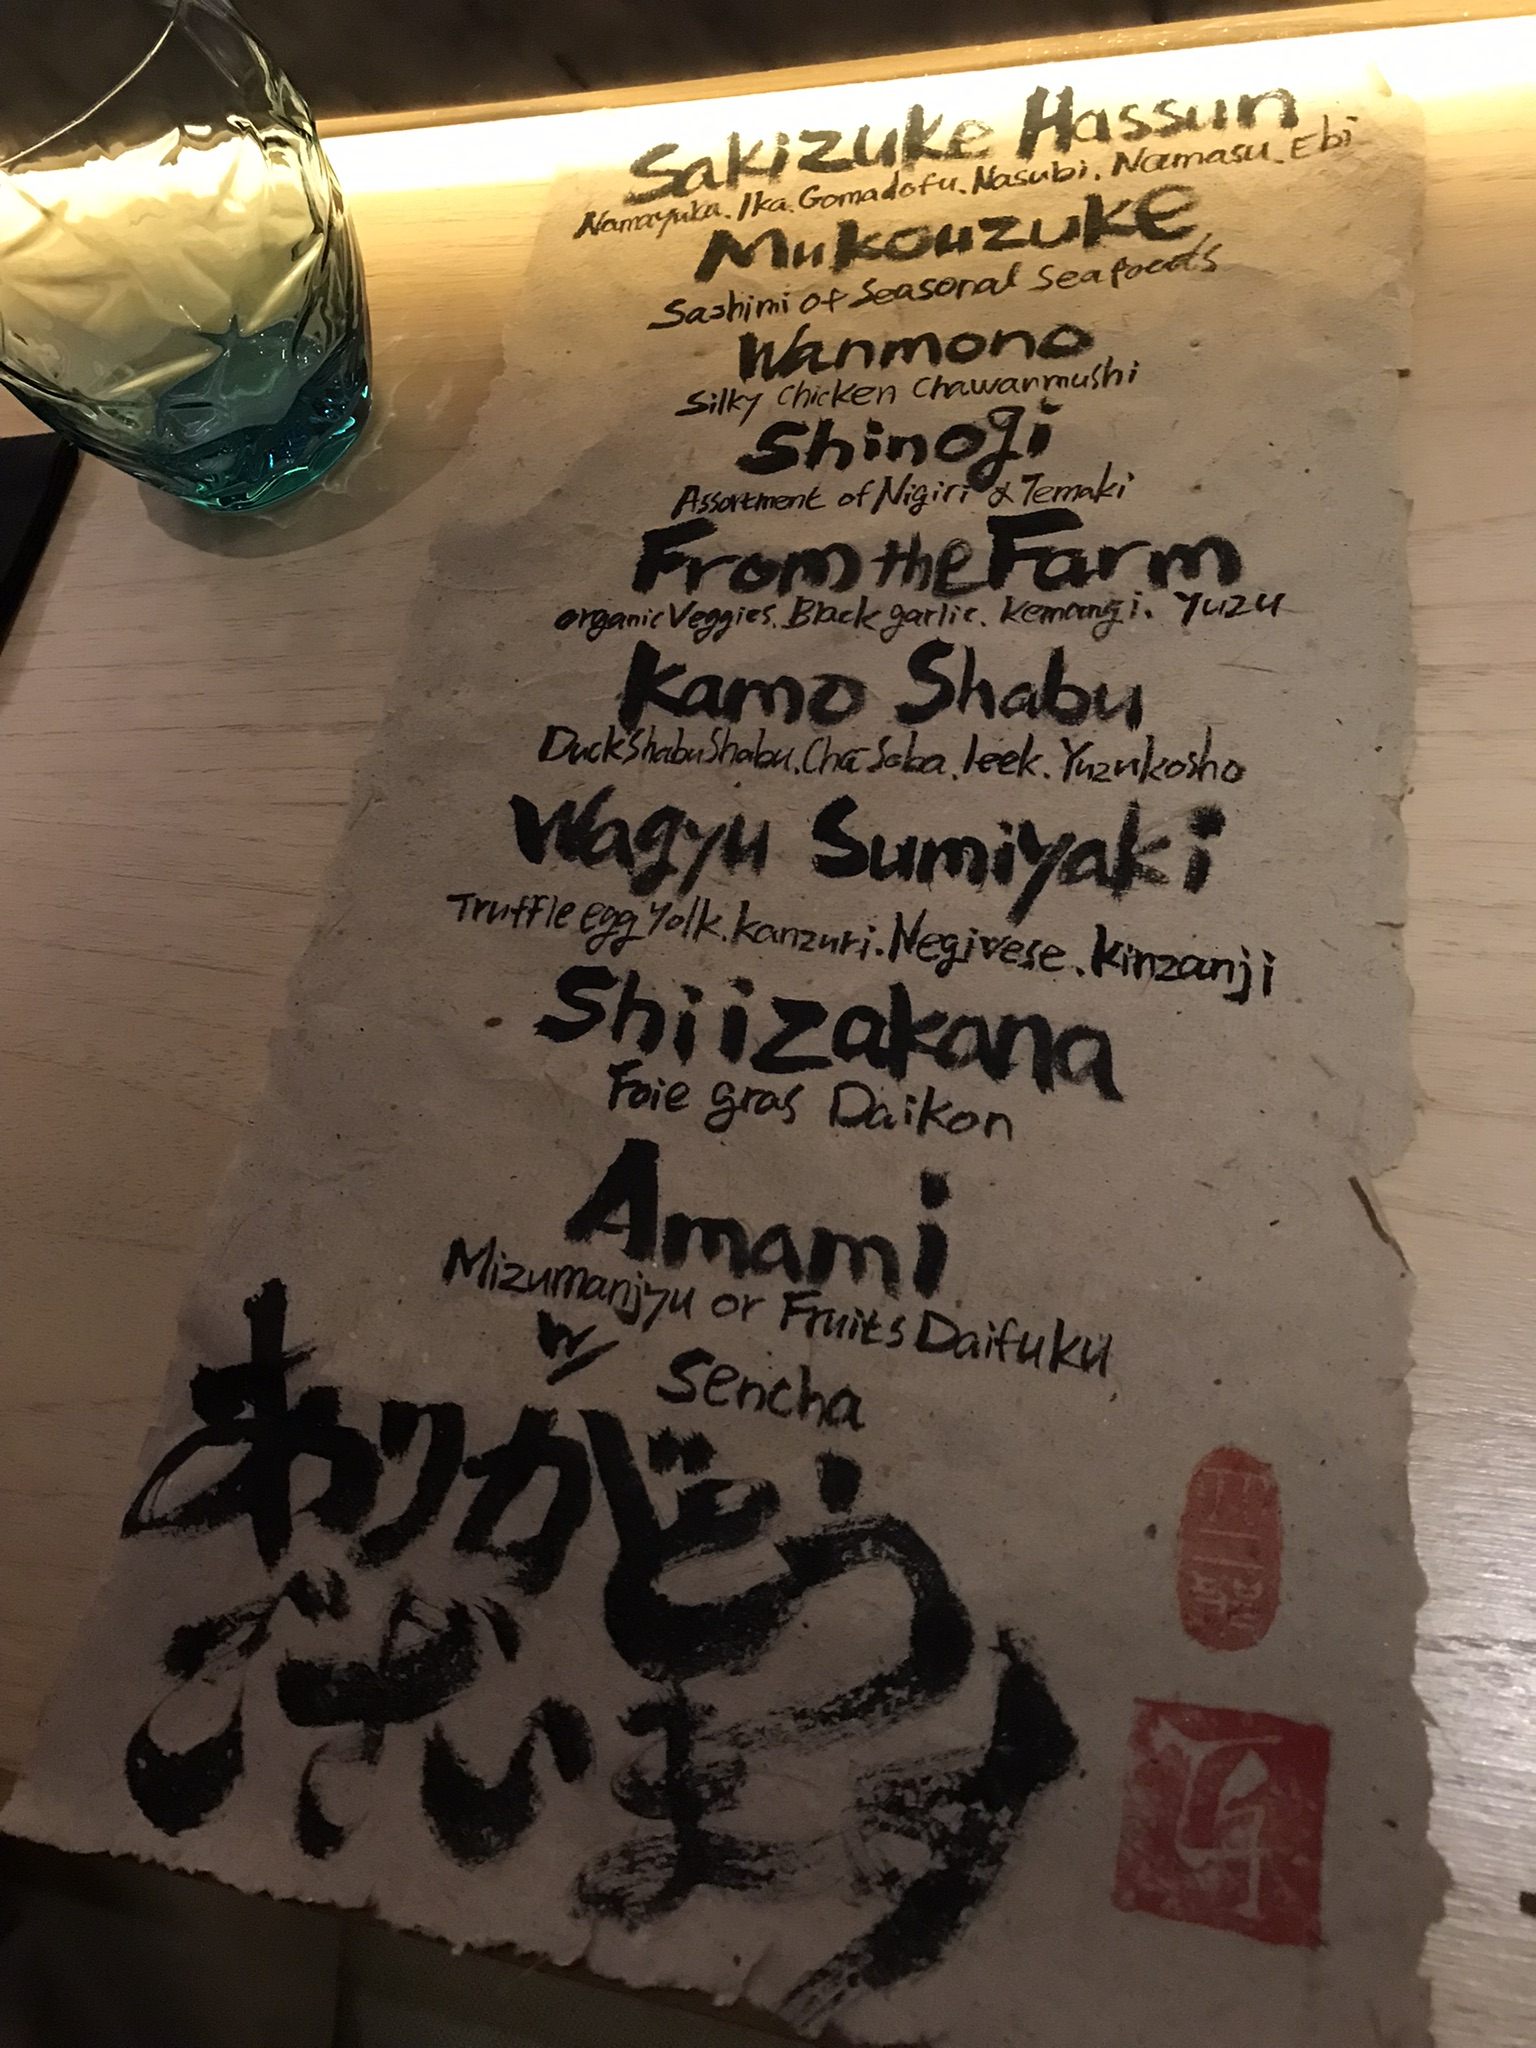 Sakizuke Hassun
Namayuba. Ika. Gomadofu. Nasubi. Namasu. Ebi
Mukouzuke
Sashimi of Seasonal Seafoods
Wanmono
Silky Chicken Chawanmushi
Shinogi
Assortment of Nigiri & Temaki
From the Farm
organic Veggies. Black garlic. Kemangi. Yuzu
Kamo Shabu
Duck Shabu Shabu. Cha-Soba. leek. Yuzukosho
Wagyu Sumiyaki
Truffle egg Yolk. Kanzuri. Negivese. Kinzanji
Shiizakana
Foie gras Daikon
Amami
Mizumanjyu or Fruits Daifuku
w/ Sencha
ありがとう
ございま
匠